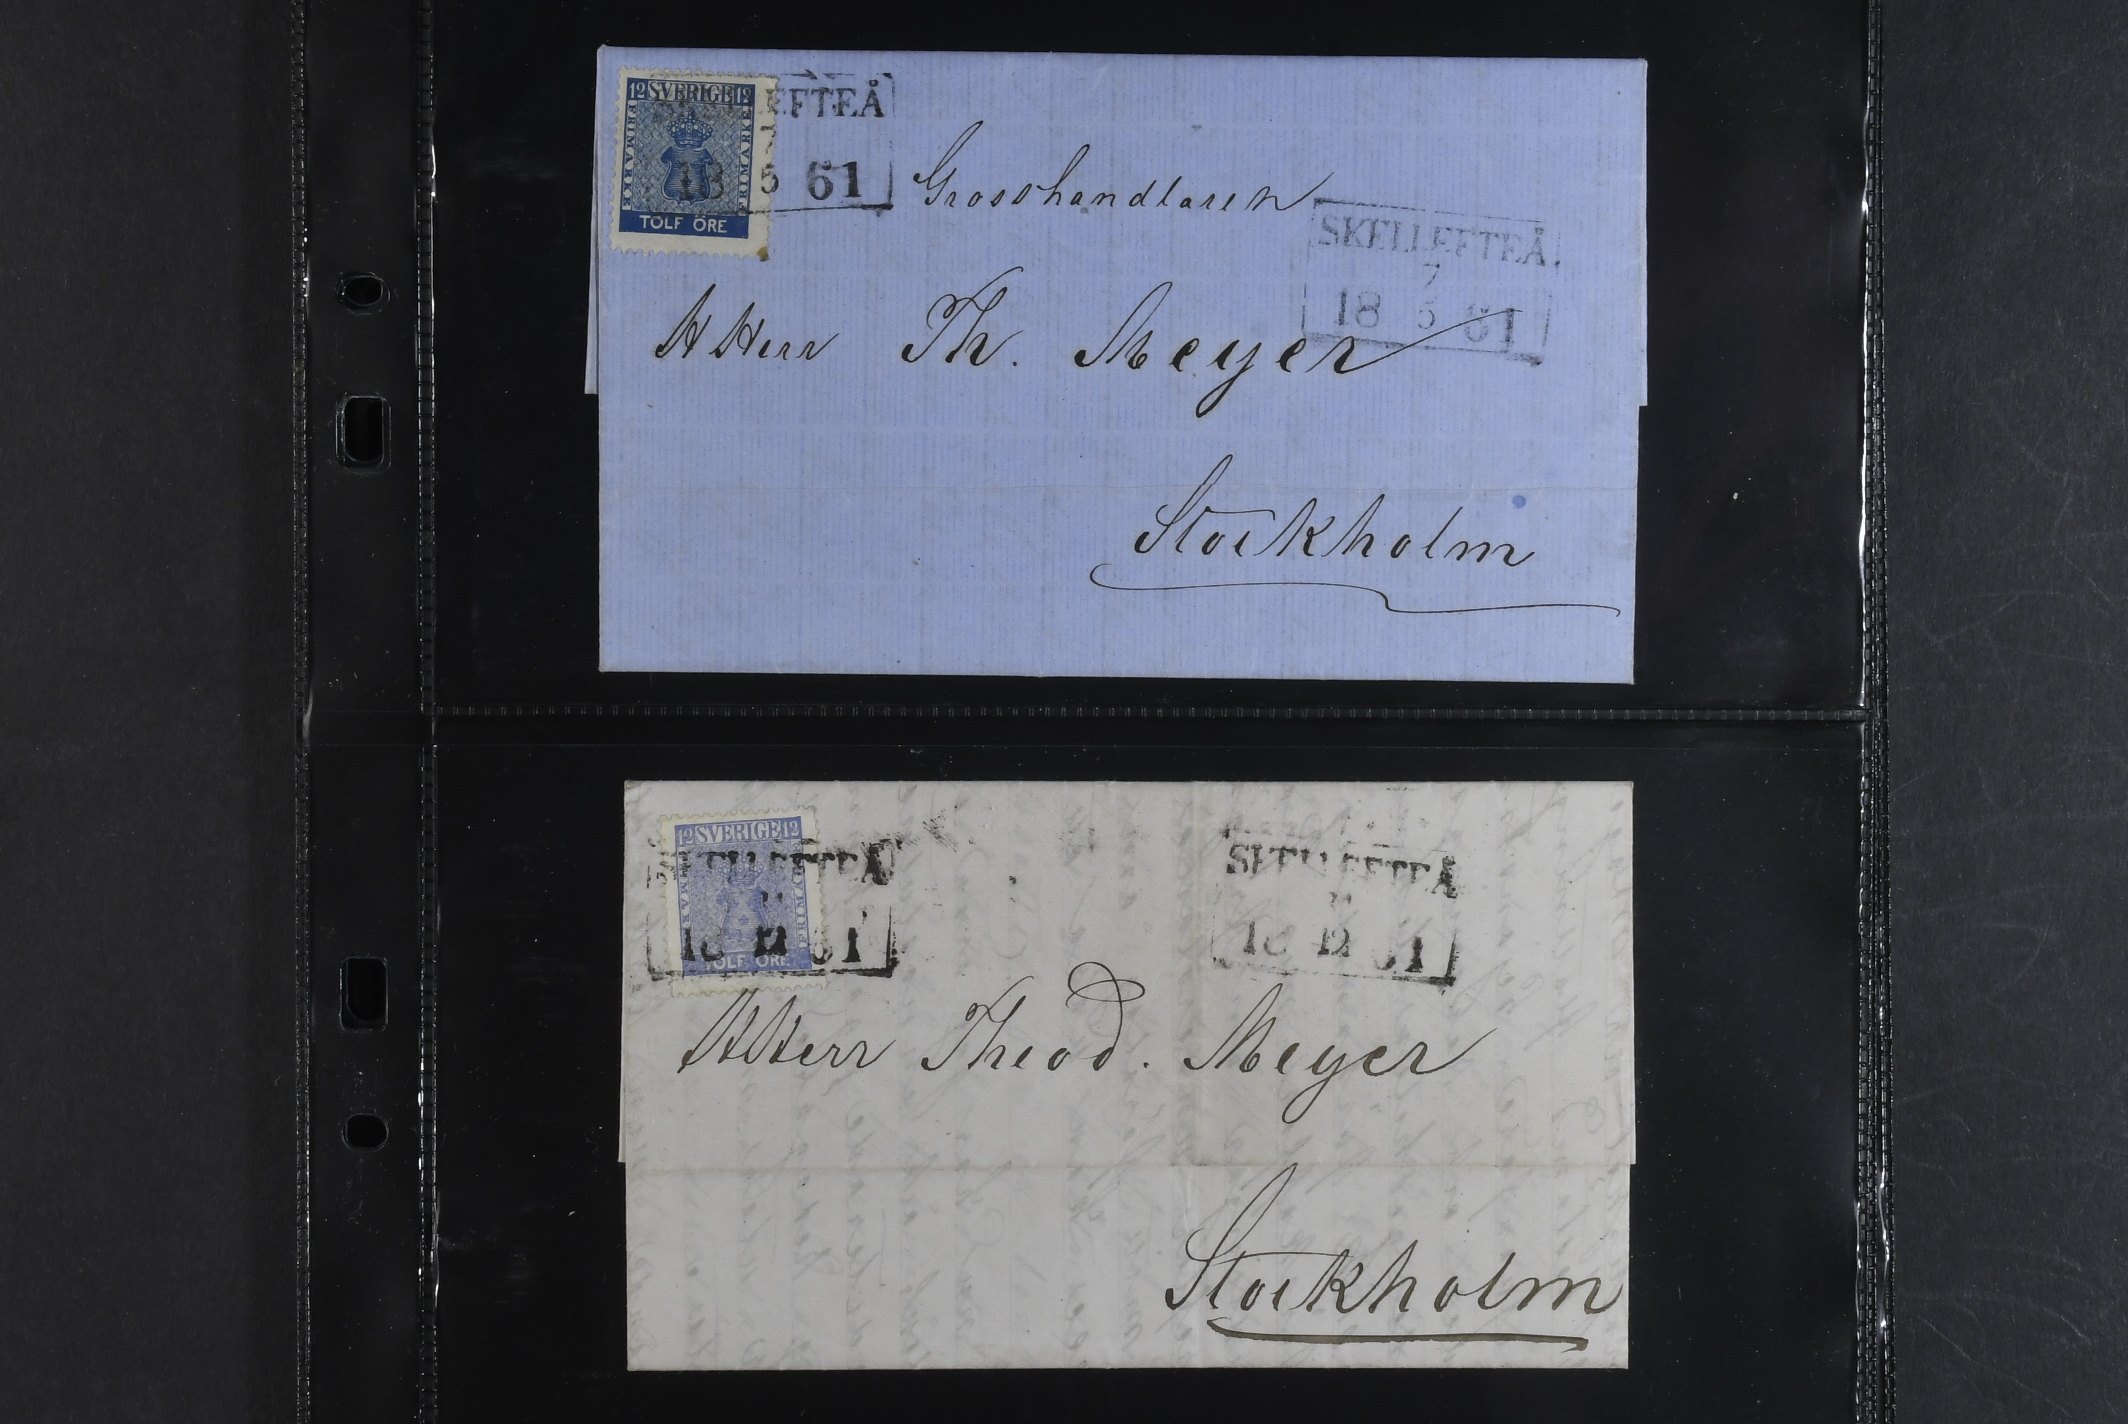 12 SVERIGE 12
FRIMÄRKE
FRIMÄRKE
TOLF ÖRE
EFTEÅ
7
18 5 61
Grosshandlaren
SKELLEFTEÅ.
7
18 5 61
HHerr Th. Meyer
Stockholm
12 SVERIGE 12
TOLF ÖRE
SKELLEFTEÅ
18 12 61
SKELLEFTEÅ
18 12 61
HHerr Theod. Meyer
Stockholm